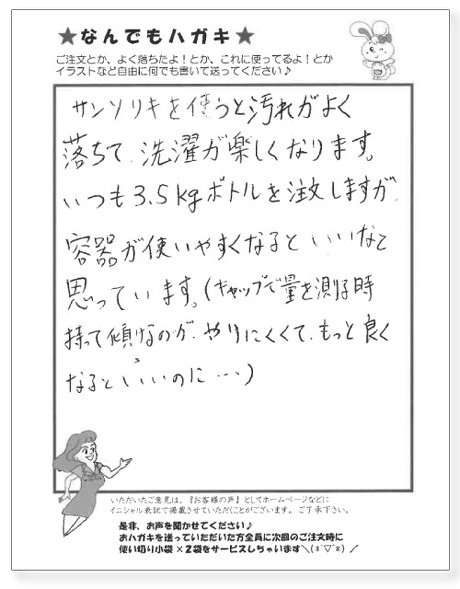 ★なんでもハガキ★
ご注文とか、よく落ちたよ！とか、これに使ってるよ！とか
イラストなど自由に何でも書いて送ってください♪
サンソリキを使うと汚れがよく
落ちて、洗濯が楽しくなります。
いつも3.5kgボトルを注文しますが、
容器が使いやすくなるといいなと
思っています。(キャップで量を測る時
持って傾けるのが、やりにくくて、もっと良く
なるといいのに…)
いただいたご意見は、『お客様の声』としてホームページなどに
イニシャル表記で掲載させていただくことがございます。ご了承下さい。
是非、お声を聞かせてください♪
おハガキを送っていただいた方全員に次回のご注文時に
使い切り小袋×2袋をサービスしちゃいます＼(*´▽`*)／